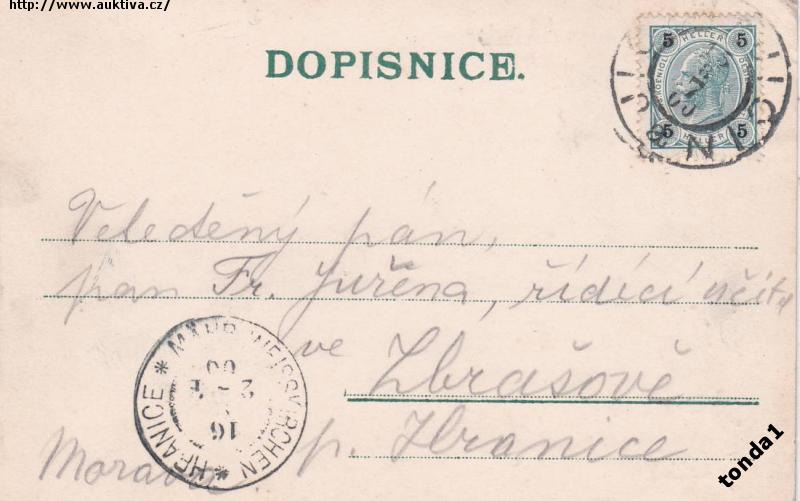 http://www.auktiva.cz/
DOPISNICE.
5 HELLER 5
5 HELLER 5
Veleděný pán,
pan Fr. Juřena, řídící učitel
ve Zbrašově
p. Hranice
Morava
MÄHR. WEISSKIRCHEN * HRANICE *
16
2
00
tonda1